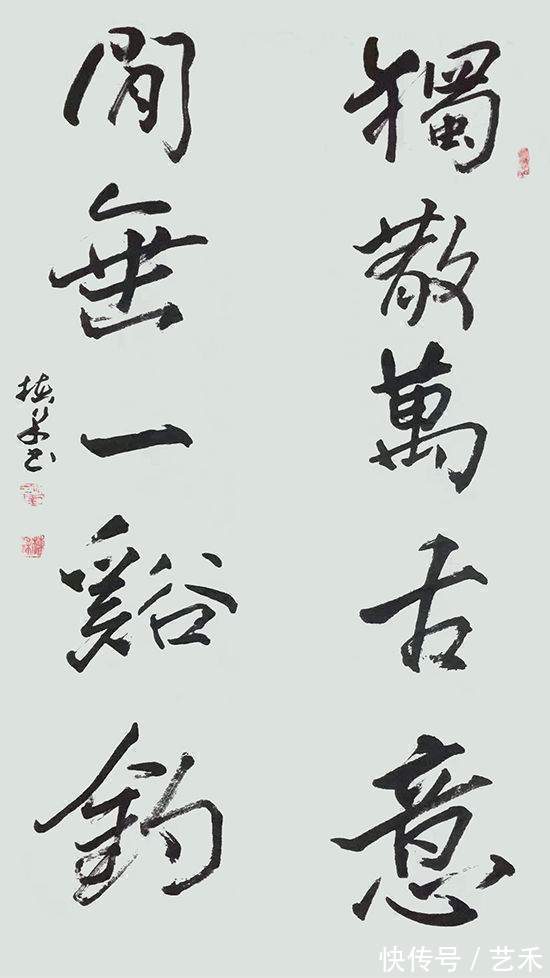 獨散萬古意
閒垂一谿釣
快传号／艺禾